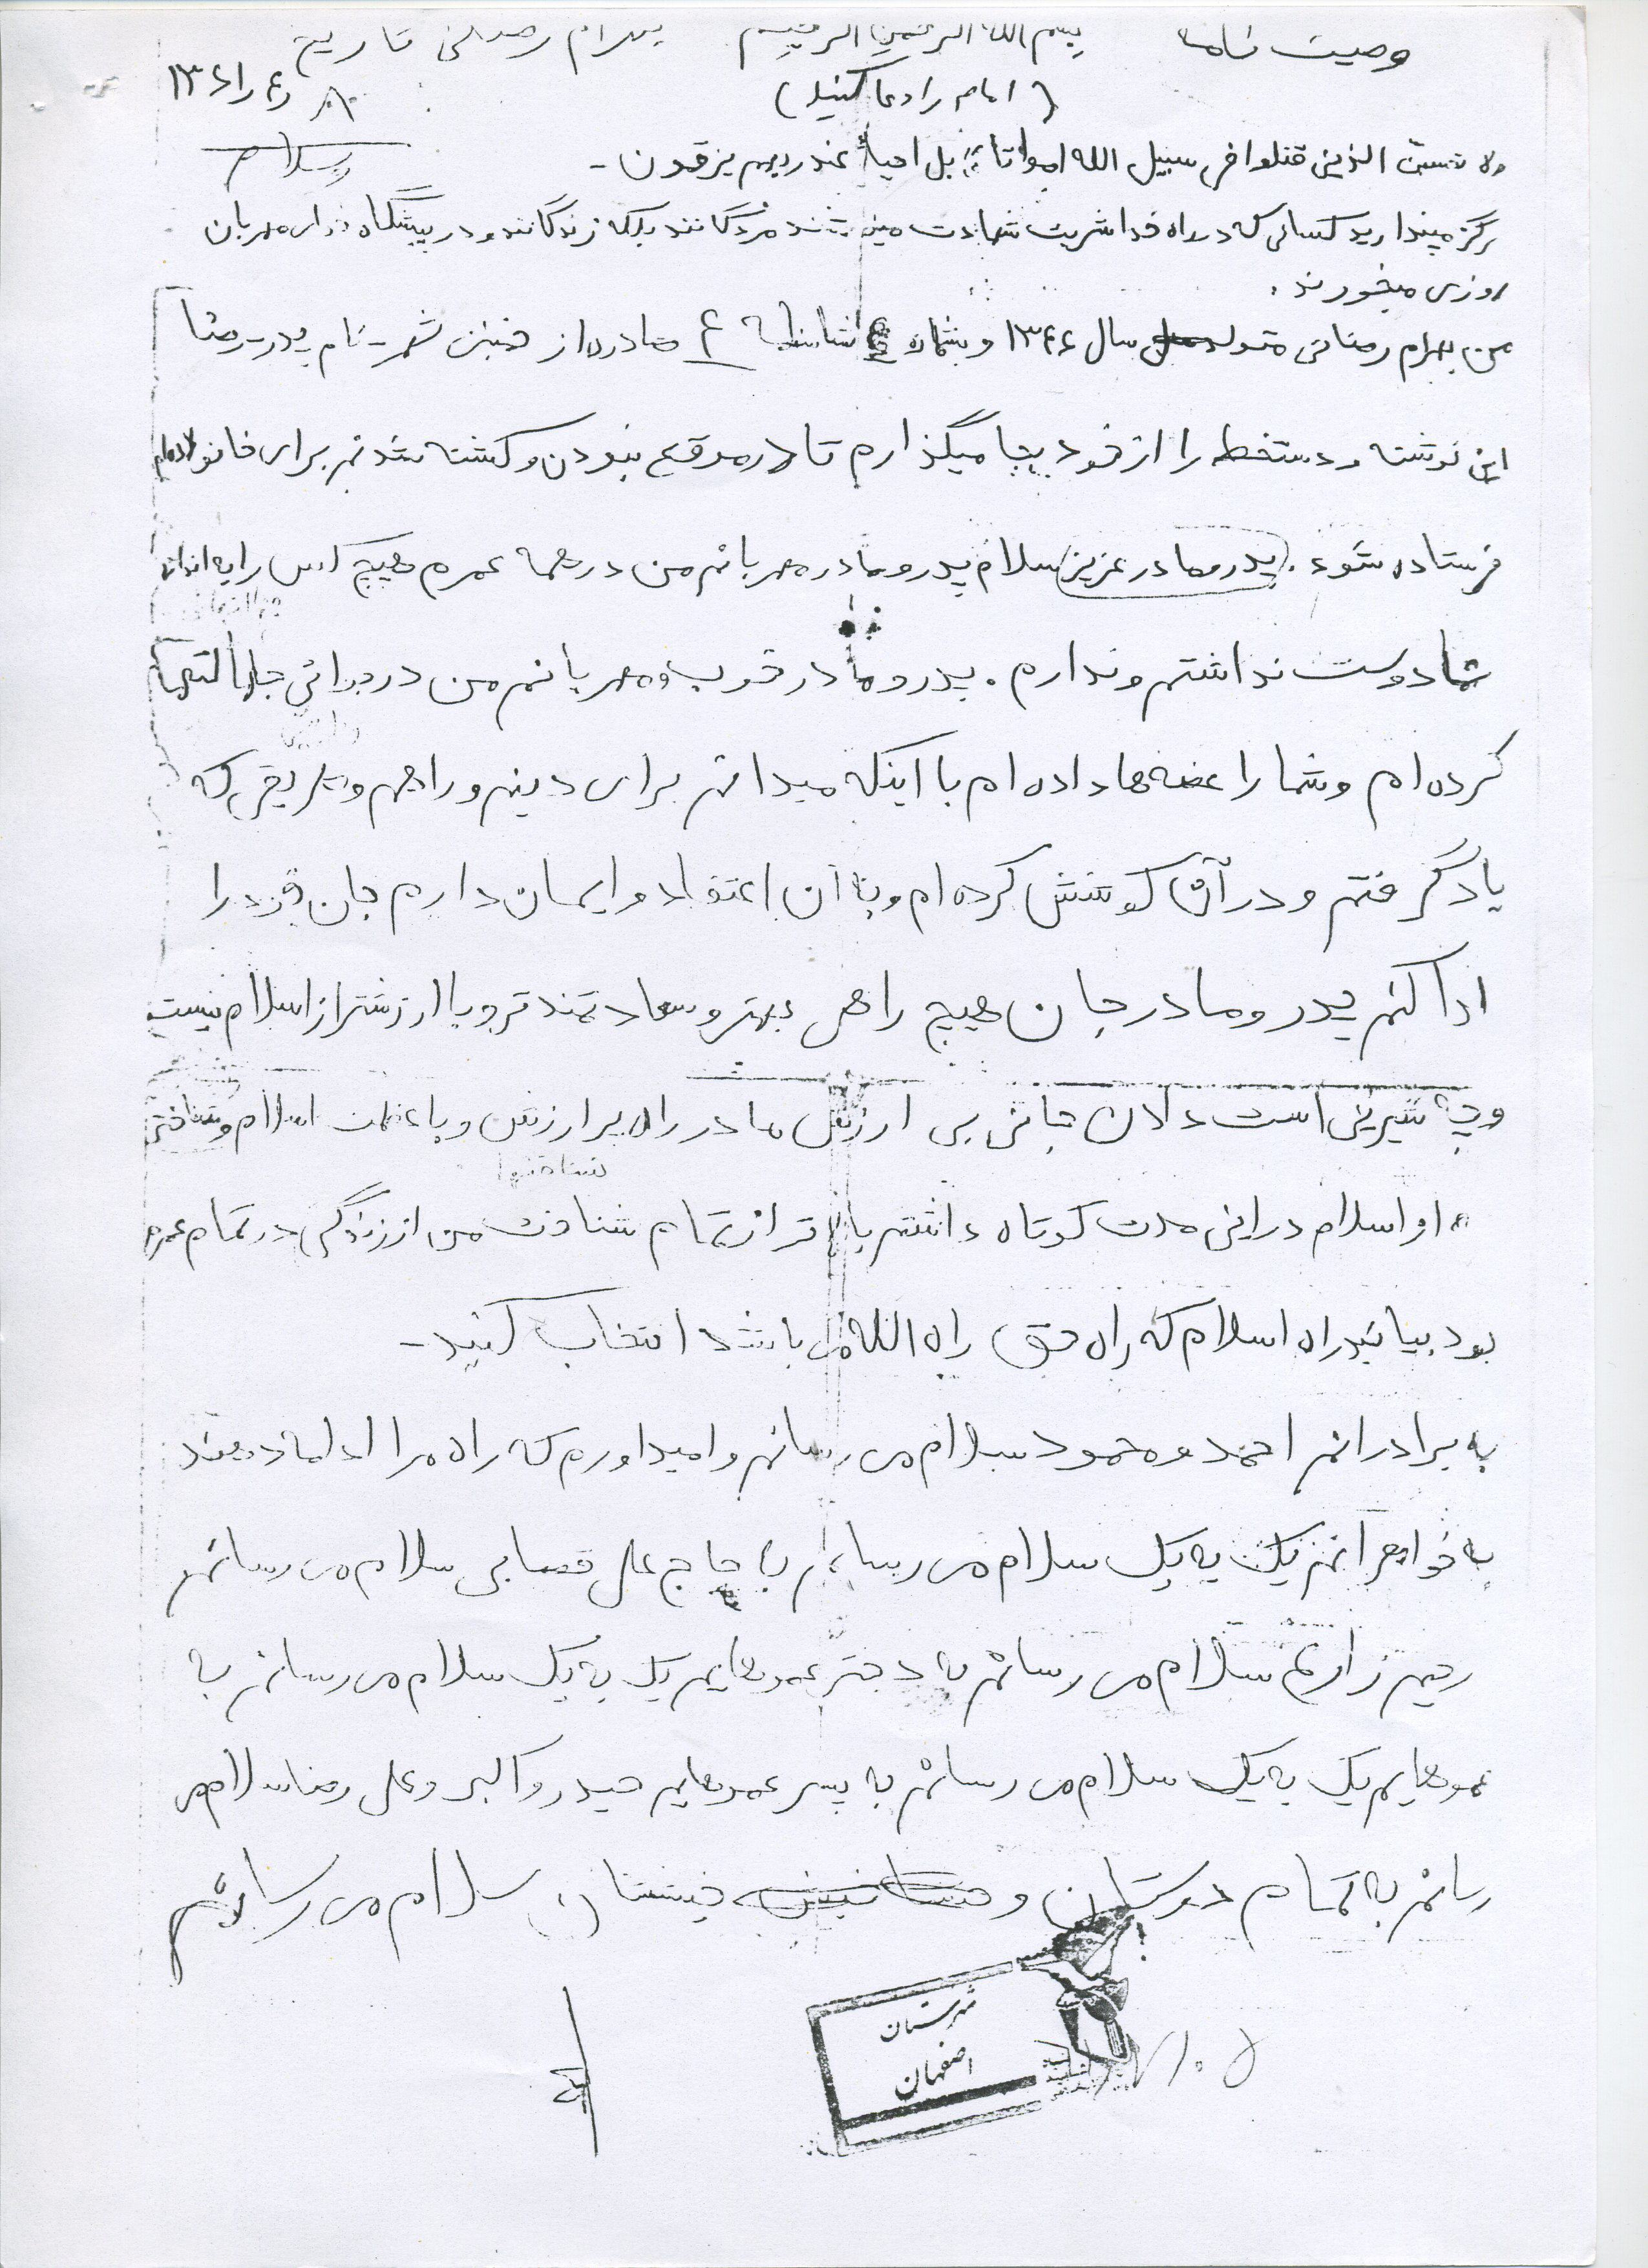 وصیت نامه بسم الله الرحمن الرحیم بهرام رضائی تاریخ
(امام را دعا کنید)
ولا تحسبن الذین قتلوا فی سبیل الله امواتا بل احیاء عند ربهم یرزقون - والسلام
هرگز مپندارید کسانی که در راه خدا شربت شهادت مینوشند مردگانند بلکه زندگانند و در پیشگاه خدای مهربان
روزی میخورند.
من بهرام رضائی متولد سال ۱۳۴۶ و بشماره شناسنامه ۶ صادره از خمینی شهر - نام پدر - رضا
این نوشته و دستخط را از خود بجا میگذارم تا در موقع نبودن و کشته شدنم برای خانواده‌ام
فرستاده شود. (پدر و مادر عزیز) سلام پدر و مادر مهربانم من در همه عمرم هیچ کس را به اندازه
شما دوست نداشتم و ندارم. پدر و مادر خوب و مهربانم من در دورانی
کرده ام و شما را غصه ها داده ام با اینکه میدانم برای دینم و راهم و طریقی که
یاد گرفتم و در آن کوشش کرده ام و به آن اعتقاد و ایمان دارم جان خود را
ادا کنم پدر و مادر جان هیچ راهی بهتر و سعادتمندتر و با ارزشتر از اسلام نیست
و چه شیرین است دادن جانی بی ارزش ما در راه پر ارزش و با عظمت اسلام و شناختی
که از اسلام در این مدت کوتاه داشتم بالاتر از تمام شناخت من از زندگی در تمام عمرم
بود بیائید راه اسلام که راه حق راه الله می باشد انتخاب کنید -
به برادرانم احمد و محمود سلام می رسانم و امیدوارم که راه مرا ادامه دهند
به خواهرانم یک به یک سلام می رسانم به حاج علی قصابی سلام می رسانم
رحیم زارع سلام می رسانم به دختر عموهایم یک به یک سلام می رسانم به
عموهایم یک به یک سلام می رسانم به پسر عموهایم حیدر و اکبر و علی رضا سلام می
رسانم به تمام دوستان و خویشان سلام می رسانم
شهرستان
اصفهان